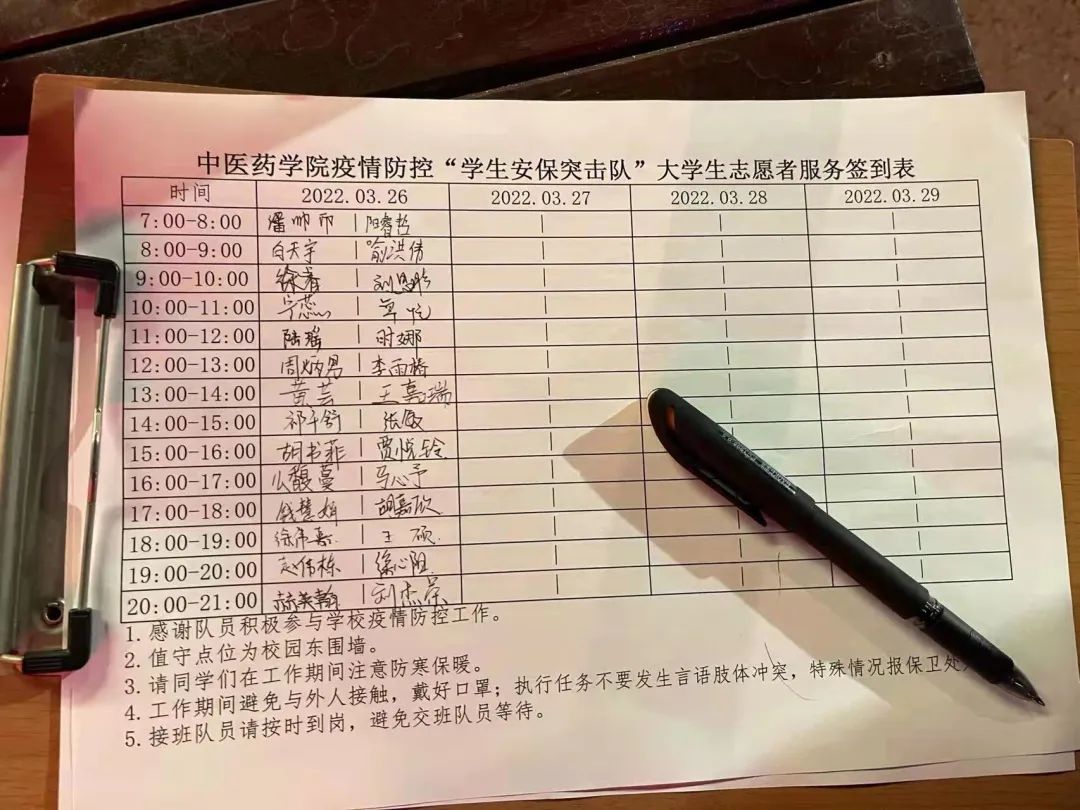 中医药学院疫情防控“学生安保突击队”大学生志愿者服务签到表
时间 2022.03.26 2022.03.27 2022.03.28 2022.03.29
7:00-8:00 阳睿哲
8:00-9:00 白天宇 喻洪伟
9:00-10:00 徐睿
10:00-11:00 宁蕊
11:00-12:00 陆瑶 时娜
12:00-13:00 周炳男 李雨椿
13:00-14:00 黄芸 王嘉瑞
14:00-15:00 祁千舒 张傲
15:00-16:00 胡书菲 贾悦铃
16:00-17:00 么馥蔓 马心予
17:00-18:00 钱慧娟 胡嘉欣
18:00-19:00 徐伟嘉 王硕
19:00-20:00 赵伟栋 徐心阳
20:00-21:00 郝英翰 刘杰荣
1. 感谢队员积极参与学校疫情防控工作。
2. 值守点位为校园东围墙。
3. 请同学们在工作期间注意防寒保暖。
4. 工作期间避免与外人接触，戴好口罩；执行任务不要发生言语肢体冲突，特殊情况报保卫处
5. 接班队员请按时到岗，避免交班队员等待。